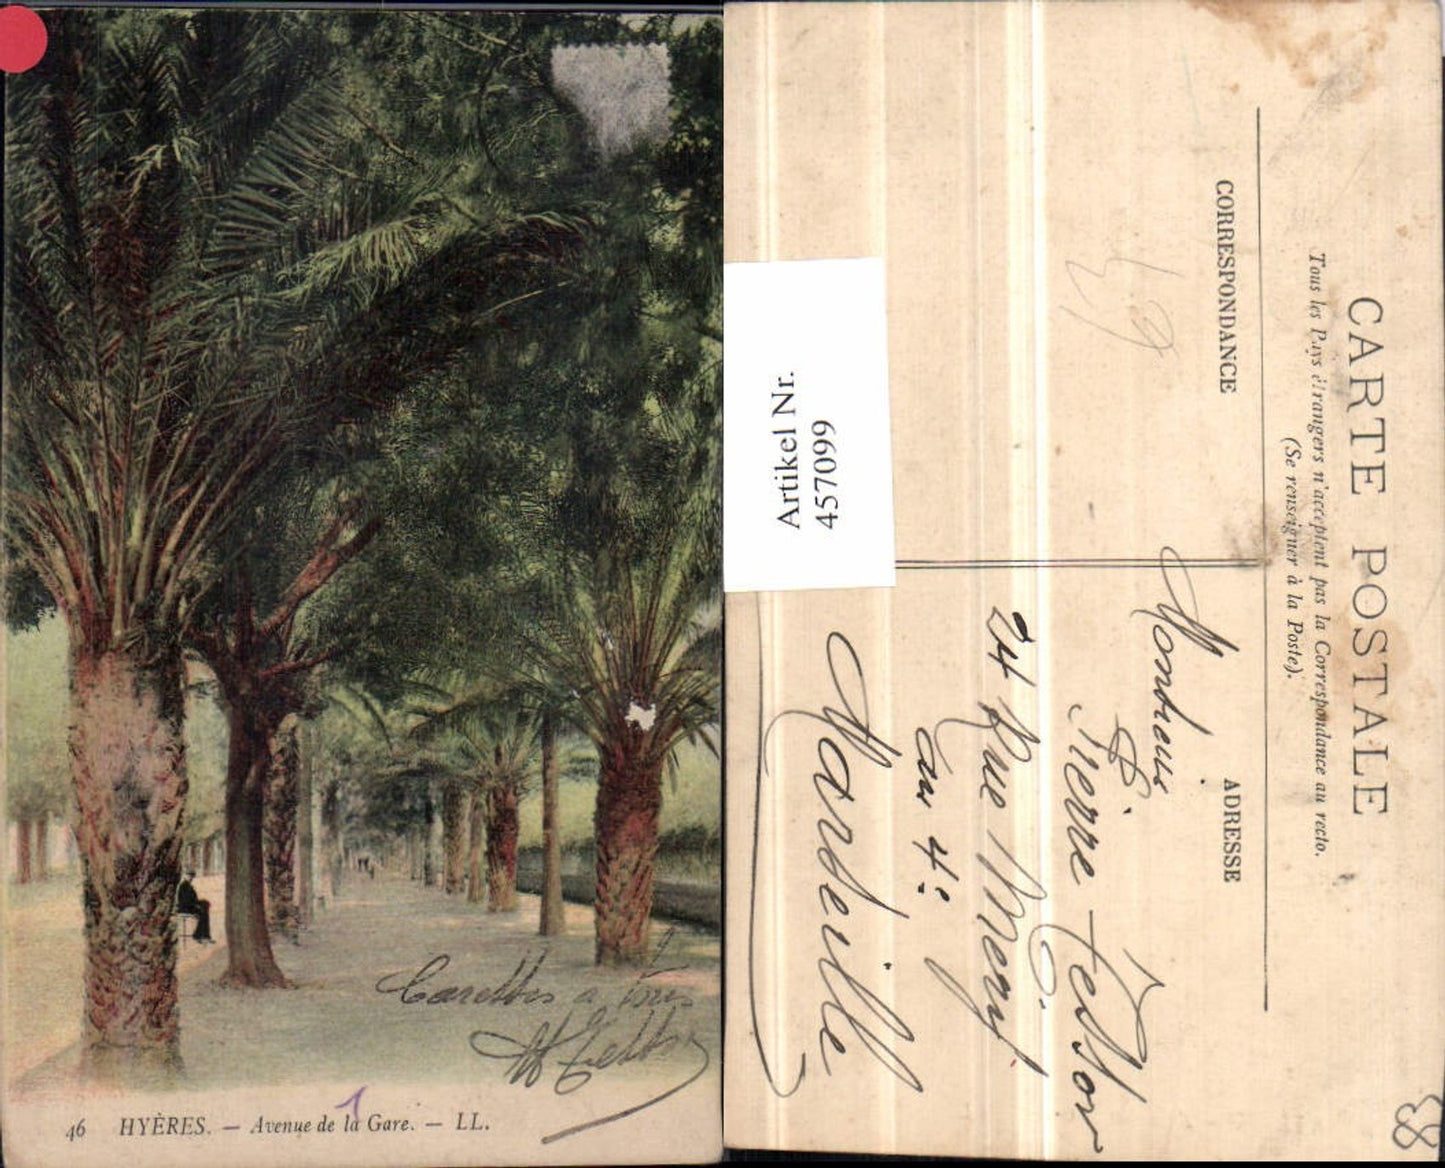 Caresses a tous
46 HYÈRES. — Avenue de la Gare. — LL.
Artikel Nr.
457099
CARTE POSTALE
Tous les Pays étrangers n'acceptent pas la Correspondance au recto.
(Se renseigner à la Poste).
CORRESPONDANCE
ADRESSE
49
Monsieur
Pierre Testor
24 Rue Mery
au 4e
Marseille
88